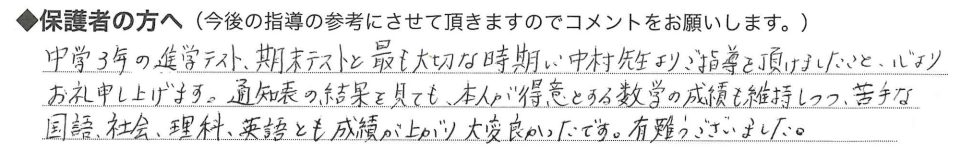 ◆保護者の方へ（今後の指導の参考にさせて頂きますのでコメントをお願いします。）
中学3年の進学テスト、期末テストと最も大切な時期に中村先生よりご指導を頂けましたこと、心より
お礼申し上げます。通知表の結果を見ても、本人が得意とする数学の成績も維持しつつ、苦手な
国語、社会、理科、英語とも成績が上がり大変良かったです。有難うございました。